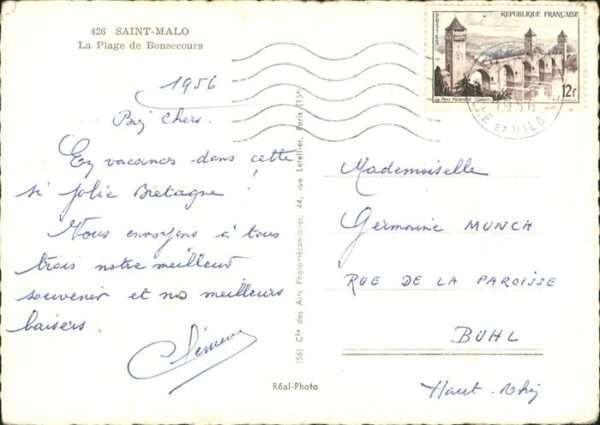 426 SAINT-MALO
La Plage de Bonsecours
1956
Chers
En vacances dans cette
si jolie Bretagne !
Nous envoyons à tous
trois notre meilleur
souvenir et no meilleurs
baisers.
(56) Cie des Arts Photomécaniques, 44, rue Letellier, Paris (15e)
Réal-Photo
REPUBLIQUE FRANÇAISE
12f
1956
ET VILAINE
Mademoiselle
Germaine MUNCH
RUE DE LA PAROISSE
BUHL
Haut-Rhin